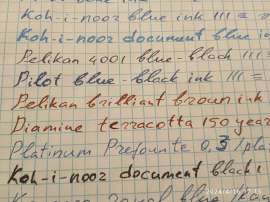 Koh-i-nooz blue ink III =
Koh-i-nooz document blue i
Pelikan 4001 blue-black III =
Pilot blue-black ink III =
Pelikan brilliant brown ink
Diamine terracotta 150 year
Platinum Prefounte 0,3 /pla
Koh-i-nooz document black i
blue